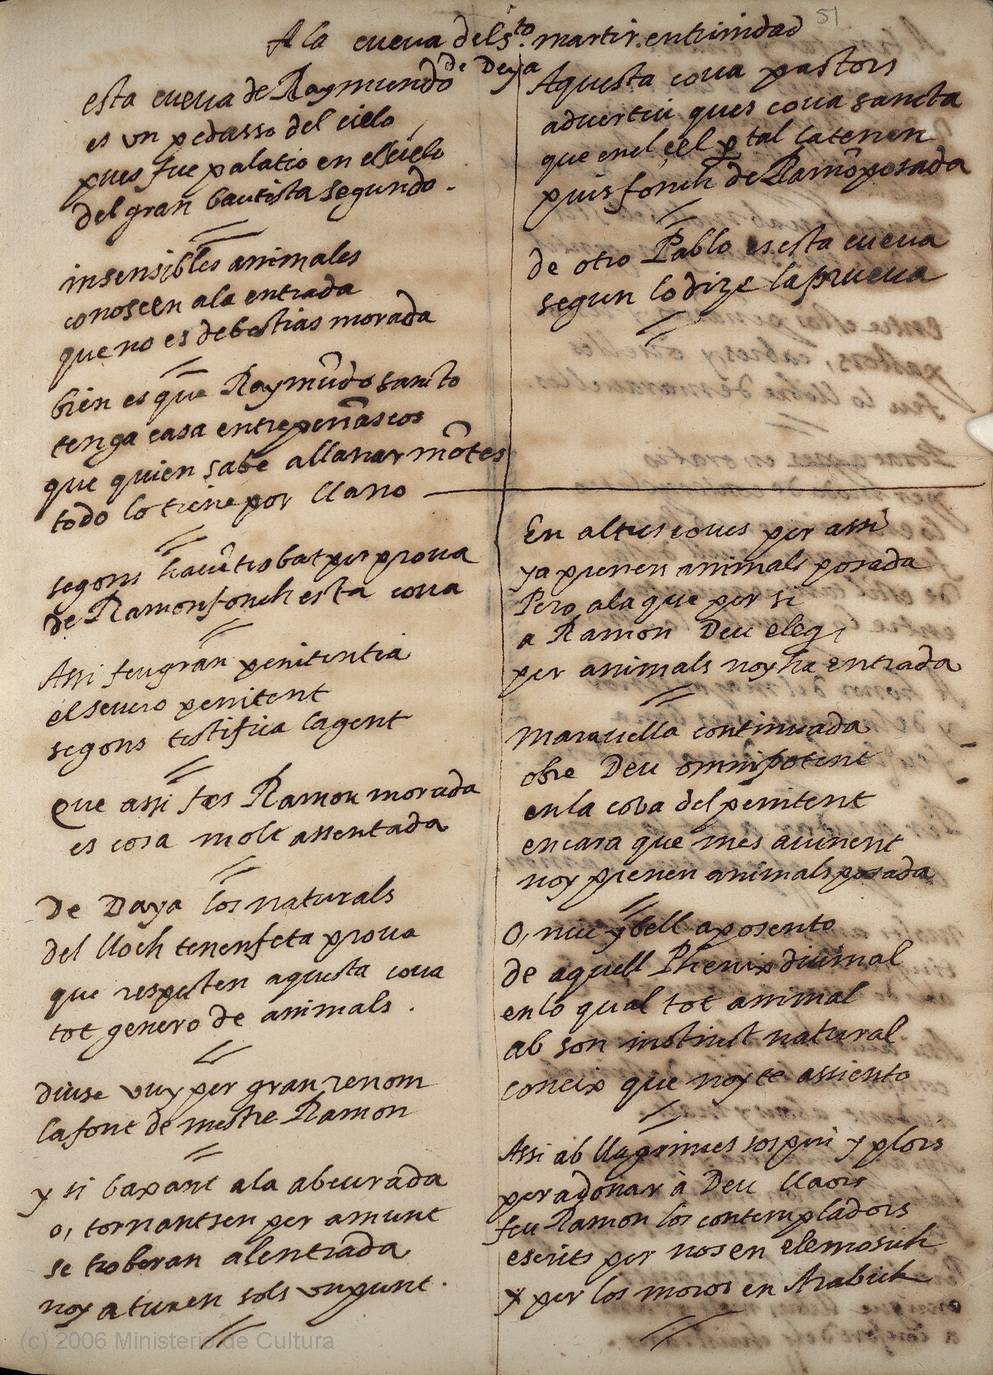 51
A la cueva del S.to martir en trinidad
de Deya
esta cueva de Raymundo
es un pedasso del cielo
pues fue palatio en el cielo
del gran bautista segundo.
insensibles animales
conoseen a la entrada
que no es de bestias morada
bien es que Raymūdo sancto
tenga casa entre peñascos
que quien sabe allanar mōtes
todo lo tiene por llano
segons havē trobat per prova
de Ramon fonch esta cova
Assi feu gran penitentia
el severo penitent
segons testifica la gent
Que assi fes Ramon morada
es cosa molt assentada
De Daya los naturals
del lloch tenen feta prova
que respecten aquesta cova
tot genero de animals.
diuse vuy per gran renom
la font de mestre Ramon
y si baxant a la abeurada
o, tornantsen per amunt
se troberan al entrada
noy aturen sols un punt.
Aquesta cova pastors
advertiu ques cova sancta
que en el cel per tal la tenen
puis fonch de Ramō posada
de otro Pablo es esta cueva
segun lo dize la prueva
En altres coves per assi
ya prenen animals posada
Pero a la que per si
a Ramon Deu elegi
per animals noy ha entrada
Maravella continuada
obre Deu omnipotent
en la coba del penitent
encara que mes avinent
noy prenen animals posada
O, niu y bell aposento
de aquell Phenix divinal
en lo qual tot animal
ab son instinct natural
coneix que noy te assiento
Assi ab llagrimes sospirs y plors
per adonar à Deu llaors
feu Ramon los contempladors
escrits per nos en elemosich
y per los moros en Arabich
(c) 2006 Ministerio de Cultura